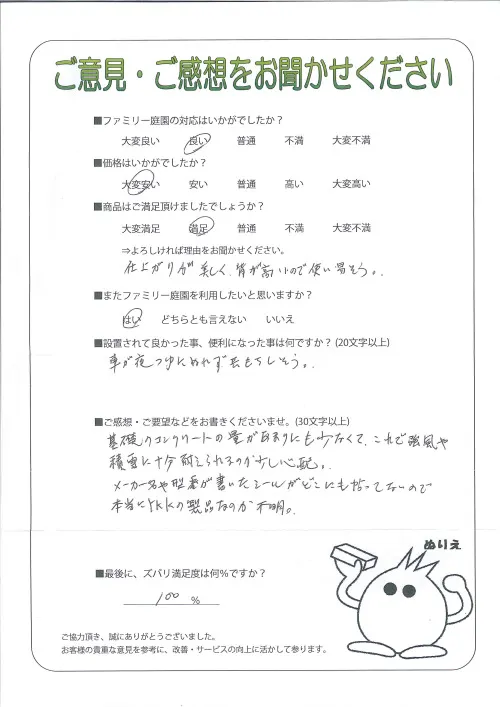 ご意見・ご感想をお聞かせください
■ファミリー庭園の対応はいかがでしたか？
大変良い　良い　普通　不満　大変不満
■価格はいかがでしたか？
大変安い　安い　普通　高い　大変高い
■商品はご満足頂けましたでしょうか？
大変満足　満足　普通　不満　大変不満
⇒よろしければ理由をお聞かせください。
仕上がりが美しく、背が高いので使い易そう。
■またファミリー庭園を利用したいと思いますか？
はい　どちらとも言えない　いいえ
■設置されて良かった事、便利になった事は何ですか？ (20文字以上)
車が夜つゆにぬれず長もちしそう。
■ご感想・ご要望などをお書きくださいませ。(30文字以上)
基礎のコンクリートの量があまりにも少なくて、これで強風や
積雪に十分耐えられるのか少し心配。
メーカー名や型番が書いたシールがどこにも貼ってないので
本当にYKKの製品なのか不明。
ぬりえ
■最後に、ズバリ満足度は何%ですか？
100 %
ご協力頂き、誠にありがとうございました。
お客様の貴重な意見を参考に、改善・サービスの向上に活かして参ります。